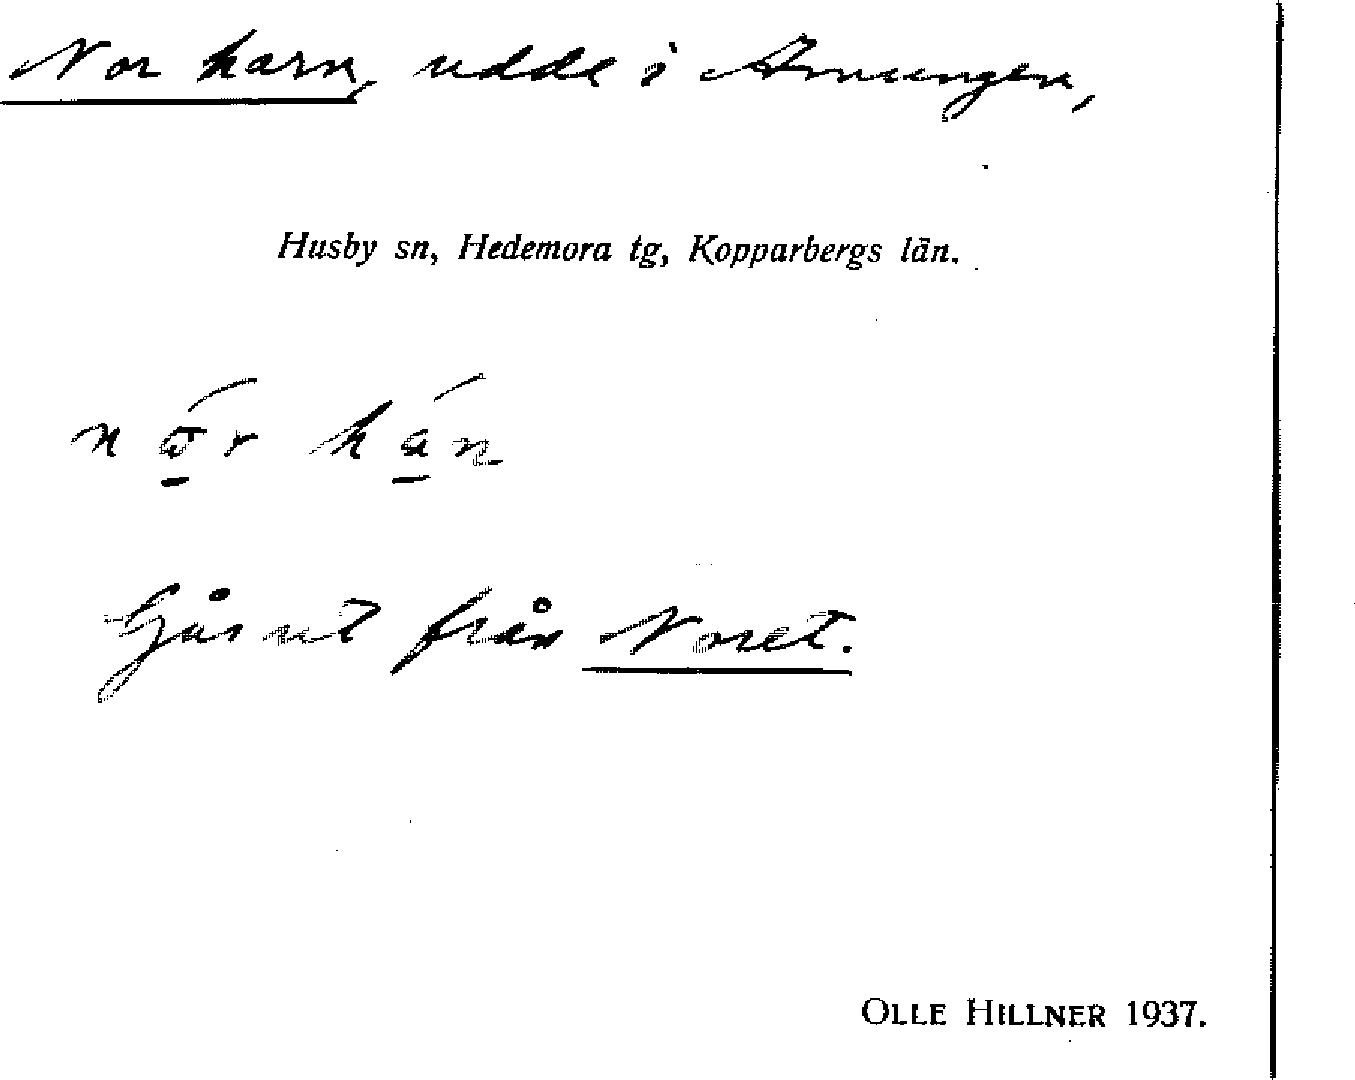 Norharn, udde i Amungen,
Husby sn, Hedemora tg, Kopparbergs län.
Går ut från Noret.
OLLE HILLNER 1937.